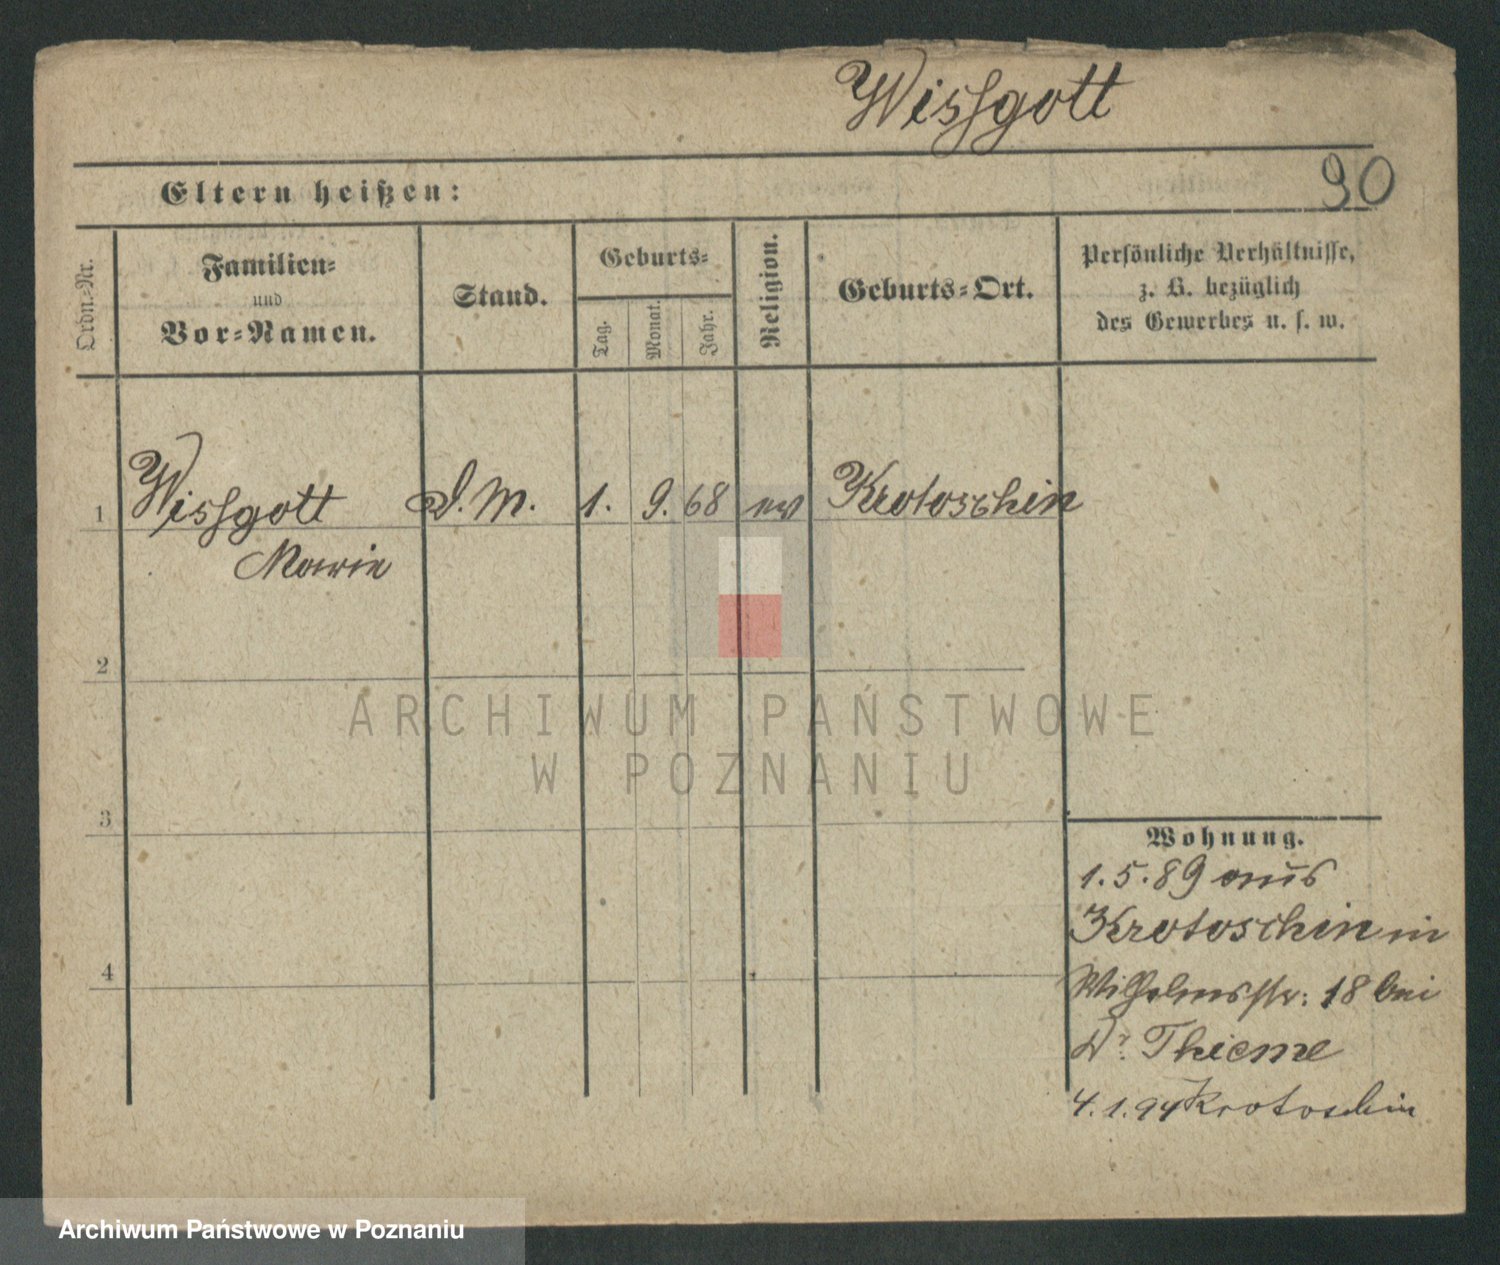 Wissgott
90
Eltern heißen:
Ordn.-Nr.
Familien-
und
Vor-Namen.
Stand.
Geburts-
Tag.
Monat.
Jahr.
Religion.
Geburts-Ort.
Persönliche Verhältnisse,
z. B. bezüglich
des Gewerbes u. s. w.
1 Wissgott D.M. 1. 9. 68 ev Krotoschin
Marie
2
3
4
Wohnung.
1.5.89 aus
Krotoschin in
Wilhelmsstr: 18 bei
Dr. Thieme
4.1.94 Krotoschin
ARCHIWUM PAŃSTWOWE
W POZNANIU
Archiwum Państwowe w Poznaniu